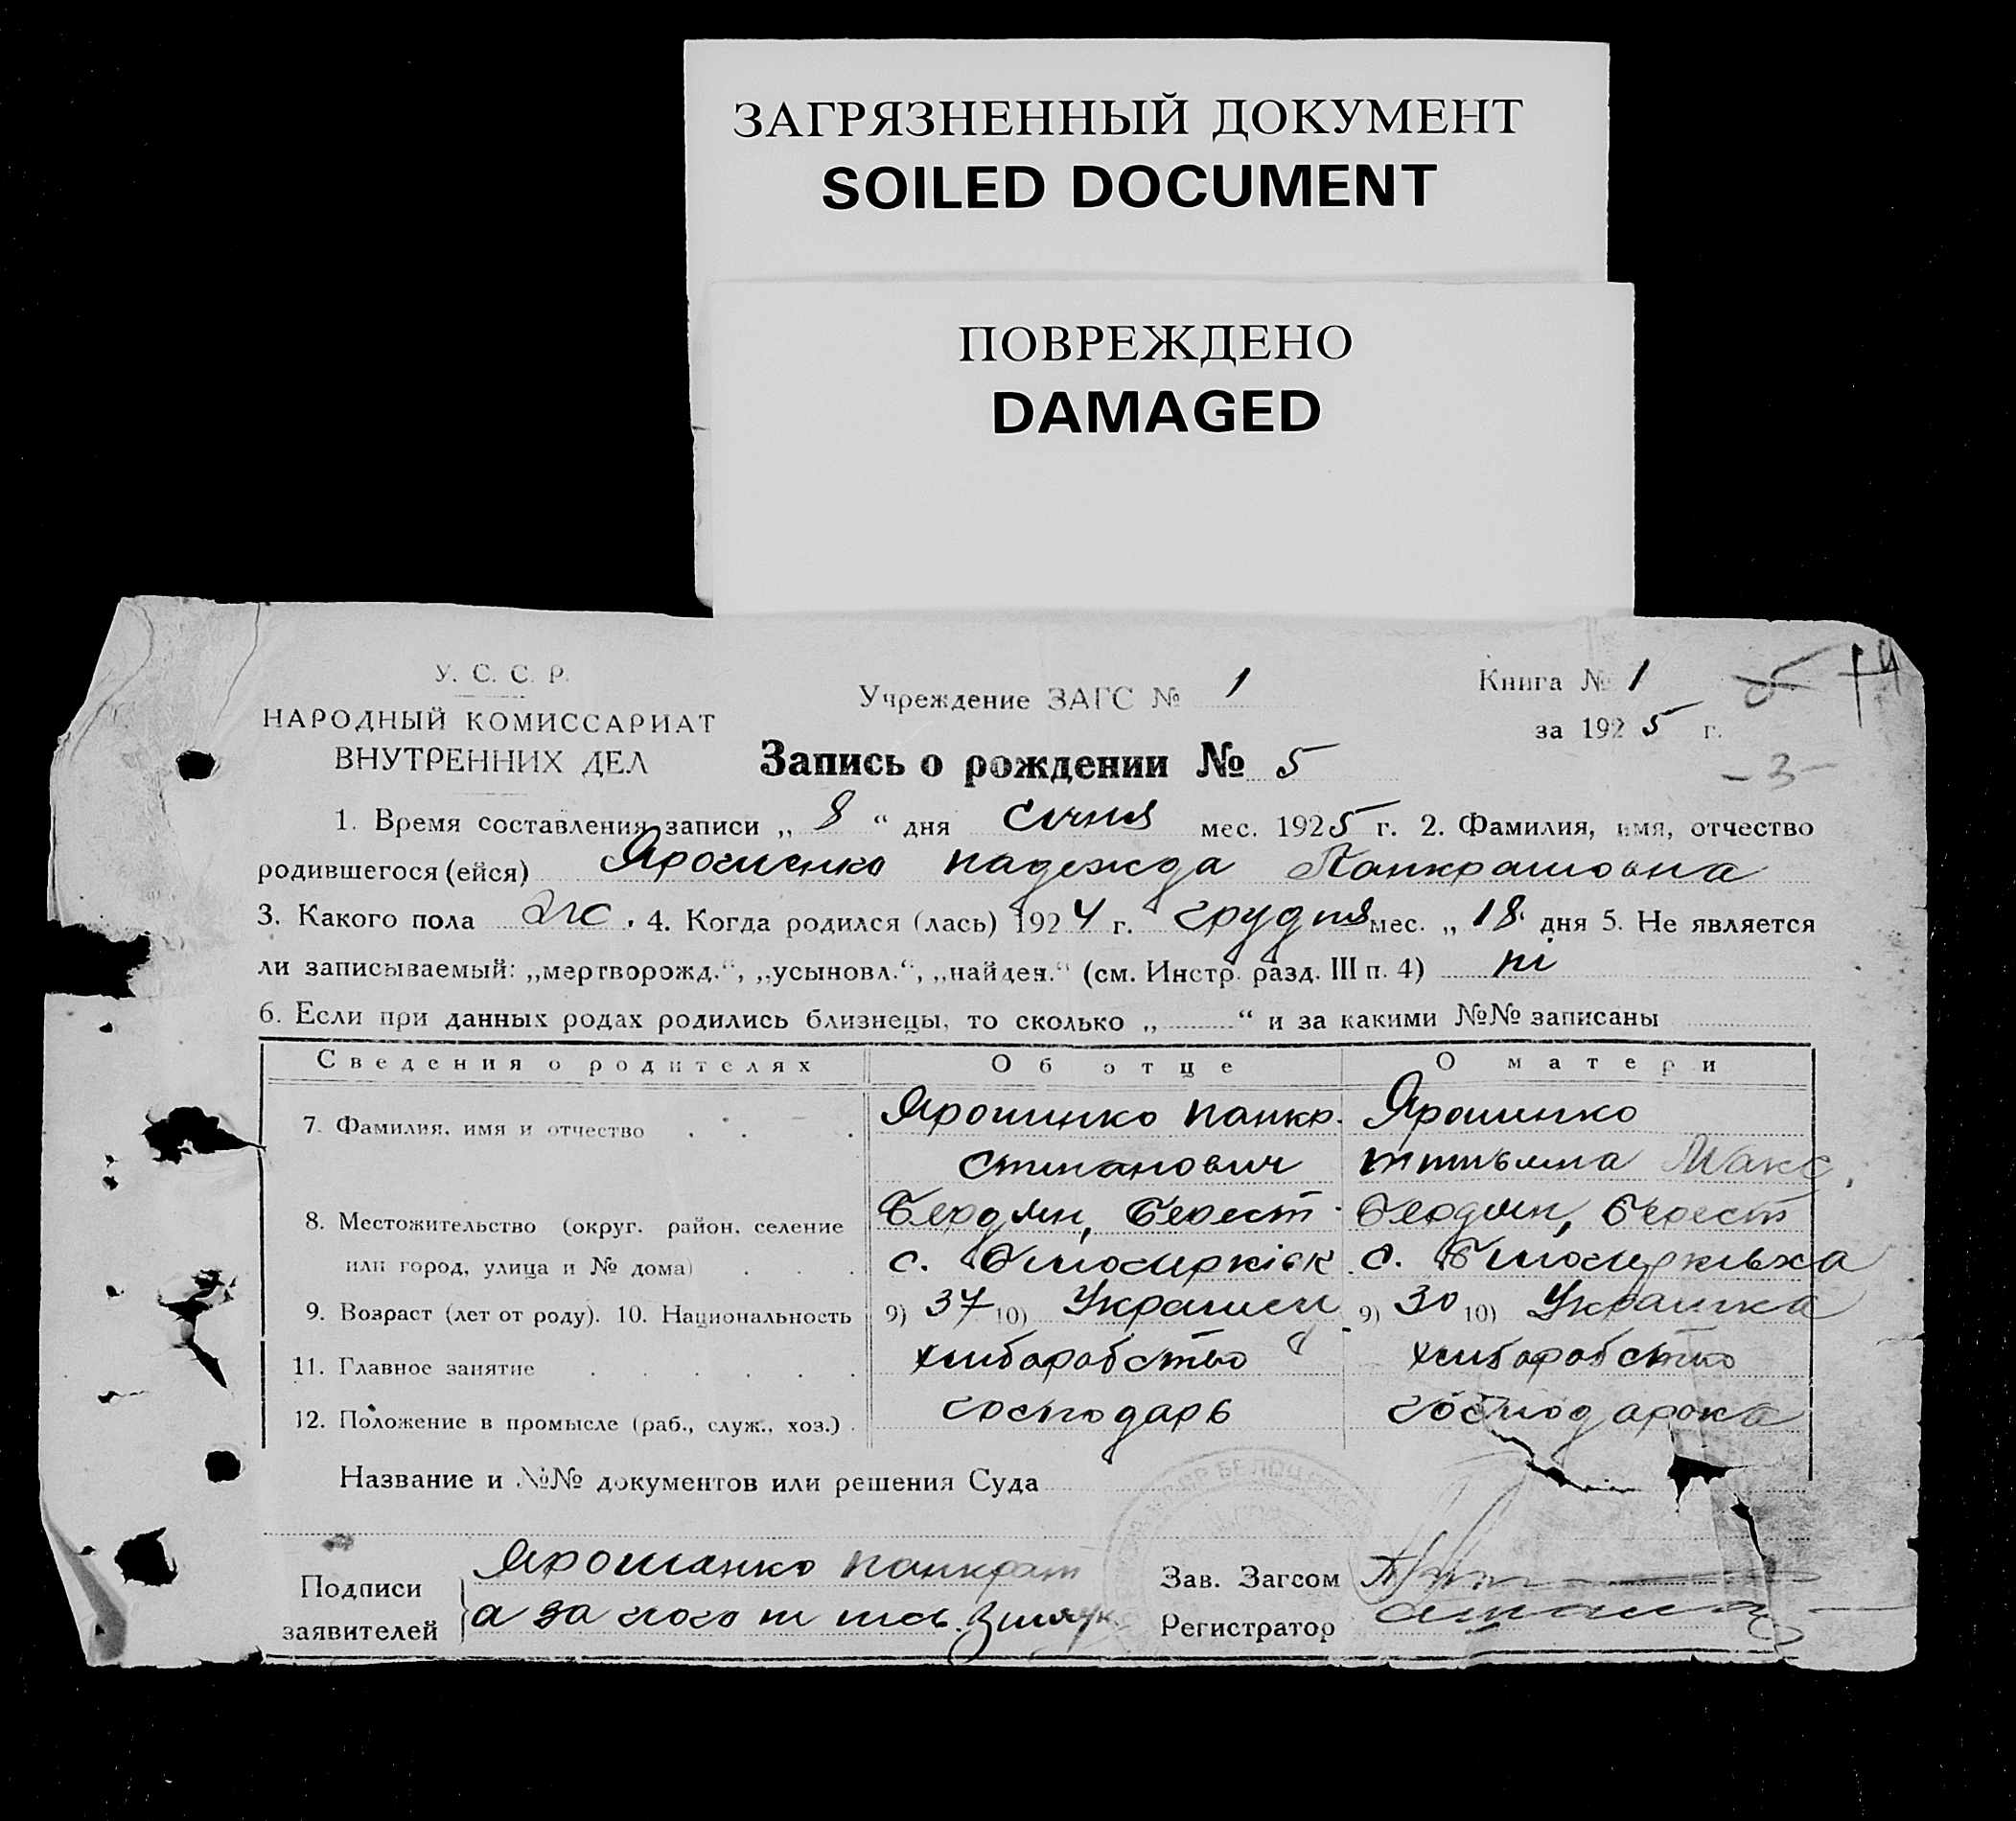 ЗАГРЯЗНЕННЫЙ ДОКУМЕНТ
SOILED DOCUMENT
ПОВРЕЖДЕНО
DAMAGED
У. С. С. Р.
НАРОДНЫЙ КОМИССАРИАТ
ВНУТРЕННИХ ДЕЛ
Учреждение ЗАГС № 1
Книга № 1
за 1925 г.
- 3 -
Запись о рождении № 5
1. Время составления записи „ 8 “ дня січня мес. 1925 г. 2. Фамилия, имя, отчество
родившегося (ейся) Ярошенко Надежда Панкратовна
3. Какого пола 4. Когда родился (лась) 1924 г. грудня мес. „ 18 “ дня 5. Не является
ли записываемый: „мертворожд.“, „усыновл.“, „найден.“ (см. Инстр. разд. III п. 4) ні
6. Если при данных родах родились близнецы, то сколько „ “ и за какими №№ записаны
Сведения о родителях Об отце О матери
7. Фамилия, имя и отчество Ярошинко Панкр. Ярошинко
Степанович Макс
8. Местожительство (округ, район, селение Бердян, Берест. Бердян, Берест
или город, улица и № дома) с. с.
9. Возраст (лет от роду). 10. Национальность 9) 37 10) Украинец 9) 30 10) Украинка
11. Главное занятие хлибаробство хлибаробство
12. Положение в промысле (раб., служ., хоз.) господарь господарка
Название и №№ документов или решения Суда
Подписи Ярошанко Панкрат Зав. Загсом
заявителей а за Регистратор